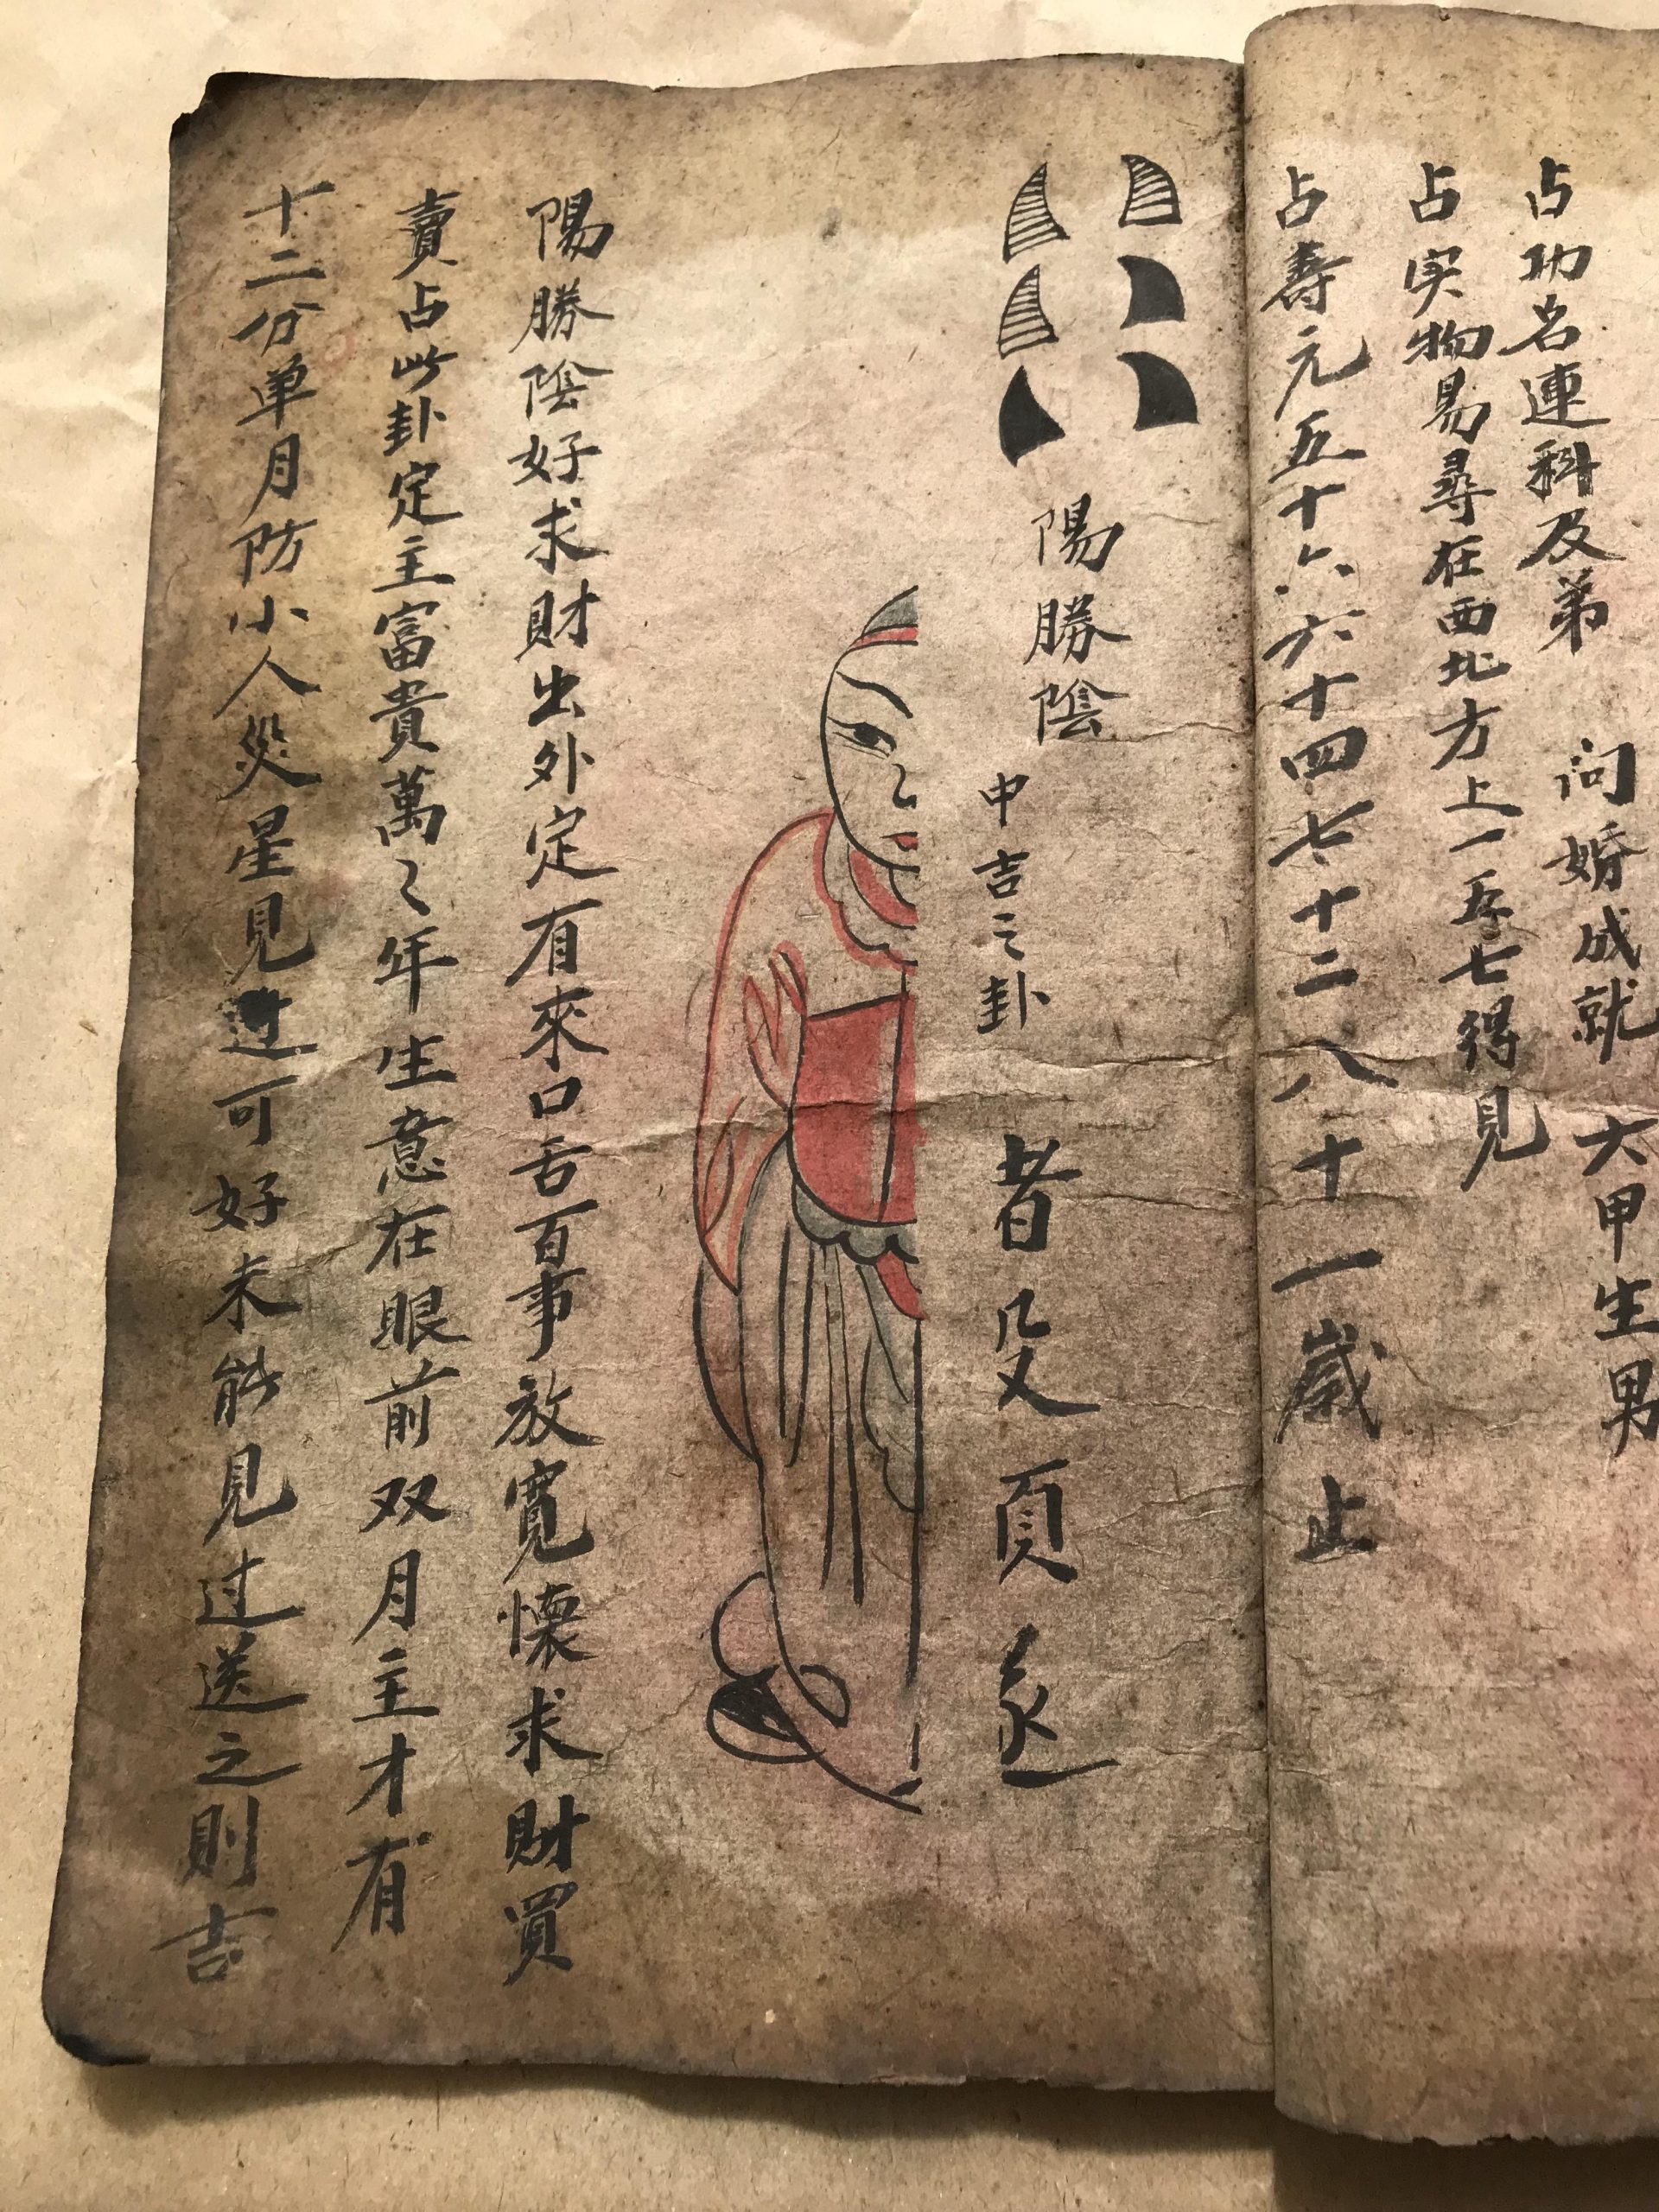 占功名連科及第　问婚成就　六甲生男
占失物易尋在西北方上一五七得見
占壽元五十六六十四七十二八十一歲止
陽勝陰
中吉之卦
者殳頁
陽勝陰好求財出外定有來口舌百事放寬懷求財買
賣占此卦定主富貴萬〻年生意在眼前双月主才有
十二分单月防小人災星見过可好未能見过送之則吉